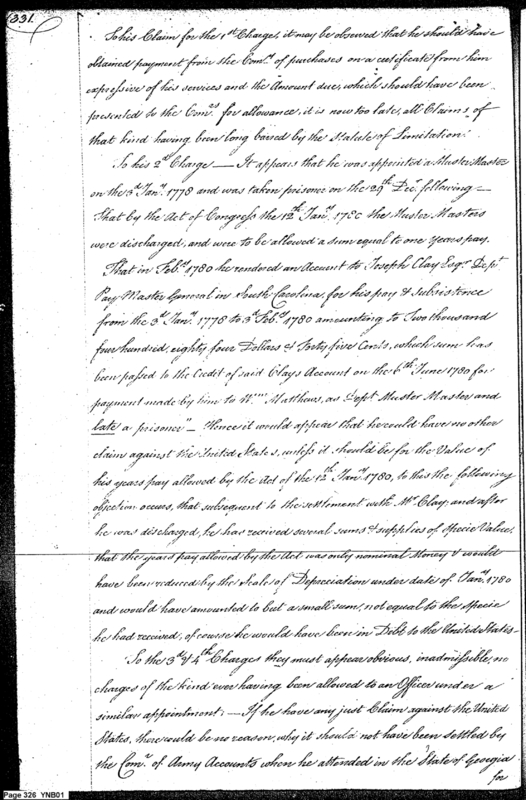 331.
To his Claim for the 1st Charge, it may be observed that he should have
obtained payment from the Comy. of purchases on a certificate from him
expressive of his services and the Amount due, which should have been
presented to the Comrs. for allowance, it is now too late, all Claims of
that kind having been long barred by the Statute of Limitation.
To his 2d Charge — It appears that he was appointed a Muster Master
on the 3d Jany. 1778 and was taken prisoner on the 29th Decr. following —
That by the Act of Congress the 12th Jany. 1780 the Muster Masters
were discharged, and were to be allowed a sum equal to one Years pay.
That in Feby. 1780 he rendered an Account to Joseph Clay Esqr. Depy.
Pay Master General in South Carolina, for his pay & Subsistence
from the 3d Jany. 1778 to 3d Feby. 1780 amounting to Two thousand
four hundred, eighty four Dollars & Forty five Cents, which sum has
been passed to the Credit of said Clays Account on the 6th June 1780 for
payment made by him to Wm. Matthews, as Depy. Muster Master and
late a prisoner" — Hence it would appear that he could have no other
claim against the United States, unless it should be for the Value of
his years pay allowed by the Act of the 12th Jany. 1780, to this the following
objection occurs, that subsequent to the settlement with Mr. Clay, and after
he was discharged, he has received several sums & supplies of specie Value,
that the years pay allowed by the Act was only nominal Money & would
have been reduced by the Scale of Depreciation under date of Jany. 1780
and would have amounted to but a small sum, not equal to the specie
he had received, of course he would have been in Debt to the United States.
To the 3d & 4th Charges they must appear obvious, inadmissible, no
charges of the kind ever having been allowed to an Officer under a
similar appointment; — If he have any just Claim against the United
States, there could be no reason, why it should not have been settled by
the Comr. of Army Accounts when he attended in the State of Georgia
for
Page 326 YNB01